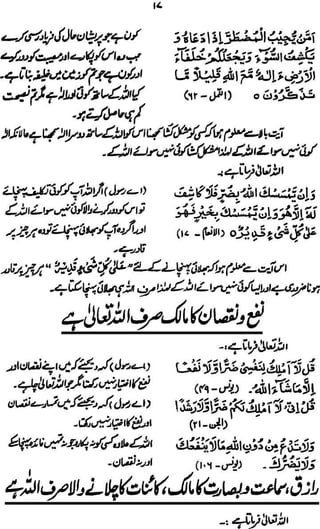 ۱۷
اَمَّنْ يُّجِيْبُ الْمُضْطَرَّ اِذَا دَعَاهُ وَ
يَكْشِفُ السُّوْٓءَ وَيَجْعَلُكُمْ خُلَفَآءَ
الْاَرْضِ ءَاِلٰهٌ مَّعَ اللّٰهِ قَلِيْلًا مَّا
تَذَكَّرُوْنَ ۵ (النمل - ۶۲)
کون ہے جو پریشان حال کی فریاد رسی کرے
جب وہ اس کو پکارے اور مصیبت کو دور کرے
اور کون ہے جو تم کو زمین میں خلیفہ بناتا ہے۔
کیا اللہ کے ساتھ کوئی اور الٰہ ہے مگر تم نصیحت
کم ہی حاصل کرتے ہو۔
آیت بالا سے معلوم ہوا کہ کسی کو مشکل کشا سمجھنا اس کو اللہ کے ساتھ دوسرا الٰہ سمجھنا ہے حالانکہ الٰہ
کوئی نہیں سوائے اللہ کے لہٰذا مشکل کشا کوئی نہیں سوائے اللہ کے۔
اللہ تعالیٰ فرماتا ہے :۔
وَاِنْ يَّمْسَسْكَ اللّٰهُ بِضُرٍّ فَلَا كَاشِفَ
لَهٗٓ اِلَّا هُوَ وَاِنْ يَّمْسَسْكَ بِخَيْرٍ فَهُوَ
عَلٰى كُلِّ شَىْءٍ قَدِيْرٌ ۵ (الانعام - ۱۷)
(اے رسول) اگر اللہ آپ کو کوئی تکلیف پہنچائے
تو اس کو دور کرنے والا کوئی نہیں سوائے اللہ کے
اور اگر وہ آپ کو بھلائی پہنچائے تو وہ ہر چیز پر
قادر ہے۔
اس آیت سے معلوم ہوا کہ بھلائی پہنچانے کے لئے "عَلٰى كُلِّ شَىْءٍ قَدِيْرٌ" ہر چیز پر قادر
ہونا ضروری ہے اور ایسا کوئی نہیں سوائے اللہ کے لہٰذا صرف اللہ ہی بھلائی پہنچا سکتا ہے۔
نفع و نقصان کا مالک صرف اللہ تعالیٰ ہے
اللہ تعالیٰ فرماتا ہے :۔
قُلْ لَّآ اَمْلِكُ لِنَفْسِىْ ضَرًّا وَّلَا نَفْعًا
اِلَّا مَاشَآءَ اللّٰهُ۔ (یونس - ۴۹)
(اے رسول) کہہ دیجئے کہ میں اپنے نقصان اور
نفع کا اختیار نہیں رکھتا مگر جو اللہ تعالیٰ چاہے۔
قُلْ اِنِّىْ لَآ اَمْلِكُ لَكُمْ ضَرًّا وَّلَا رَشَدًا
(الجن - ۲۱)
(اے رسول) کہہ دیجئے کہ میں تمہارے نقصان
اور نفع کا اختیار نہیں رکھتا۔
وَلَا تَدْعُ مِنْ دُوْنِ اللّٰهِ مَا لَا يَنْفَعُكَ
وَلَا يَضُرُّكَ۔ (یونس - ۱۰۶)
اللہ کے علاوہ کسی کو نہ پکارو جو نہ تمہیں فائدہ پہنچا سکے
اور نہ نقصان۔
رازق، سماعت و بصارت کا مالک، کائنات کا چلانے والا صرف اللہ ہے
اللہ تعالیٰ فرماتا ہے :۔